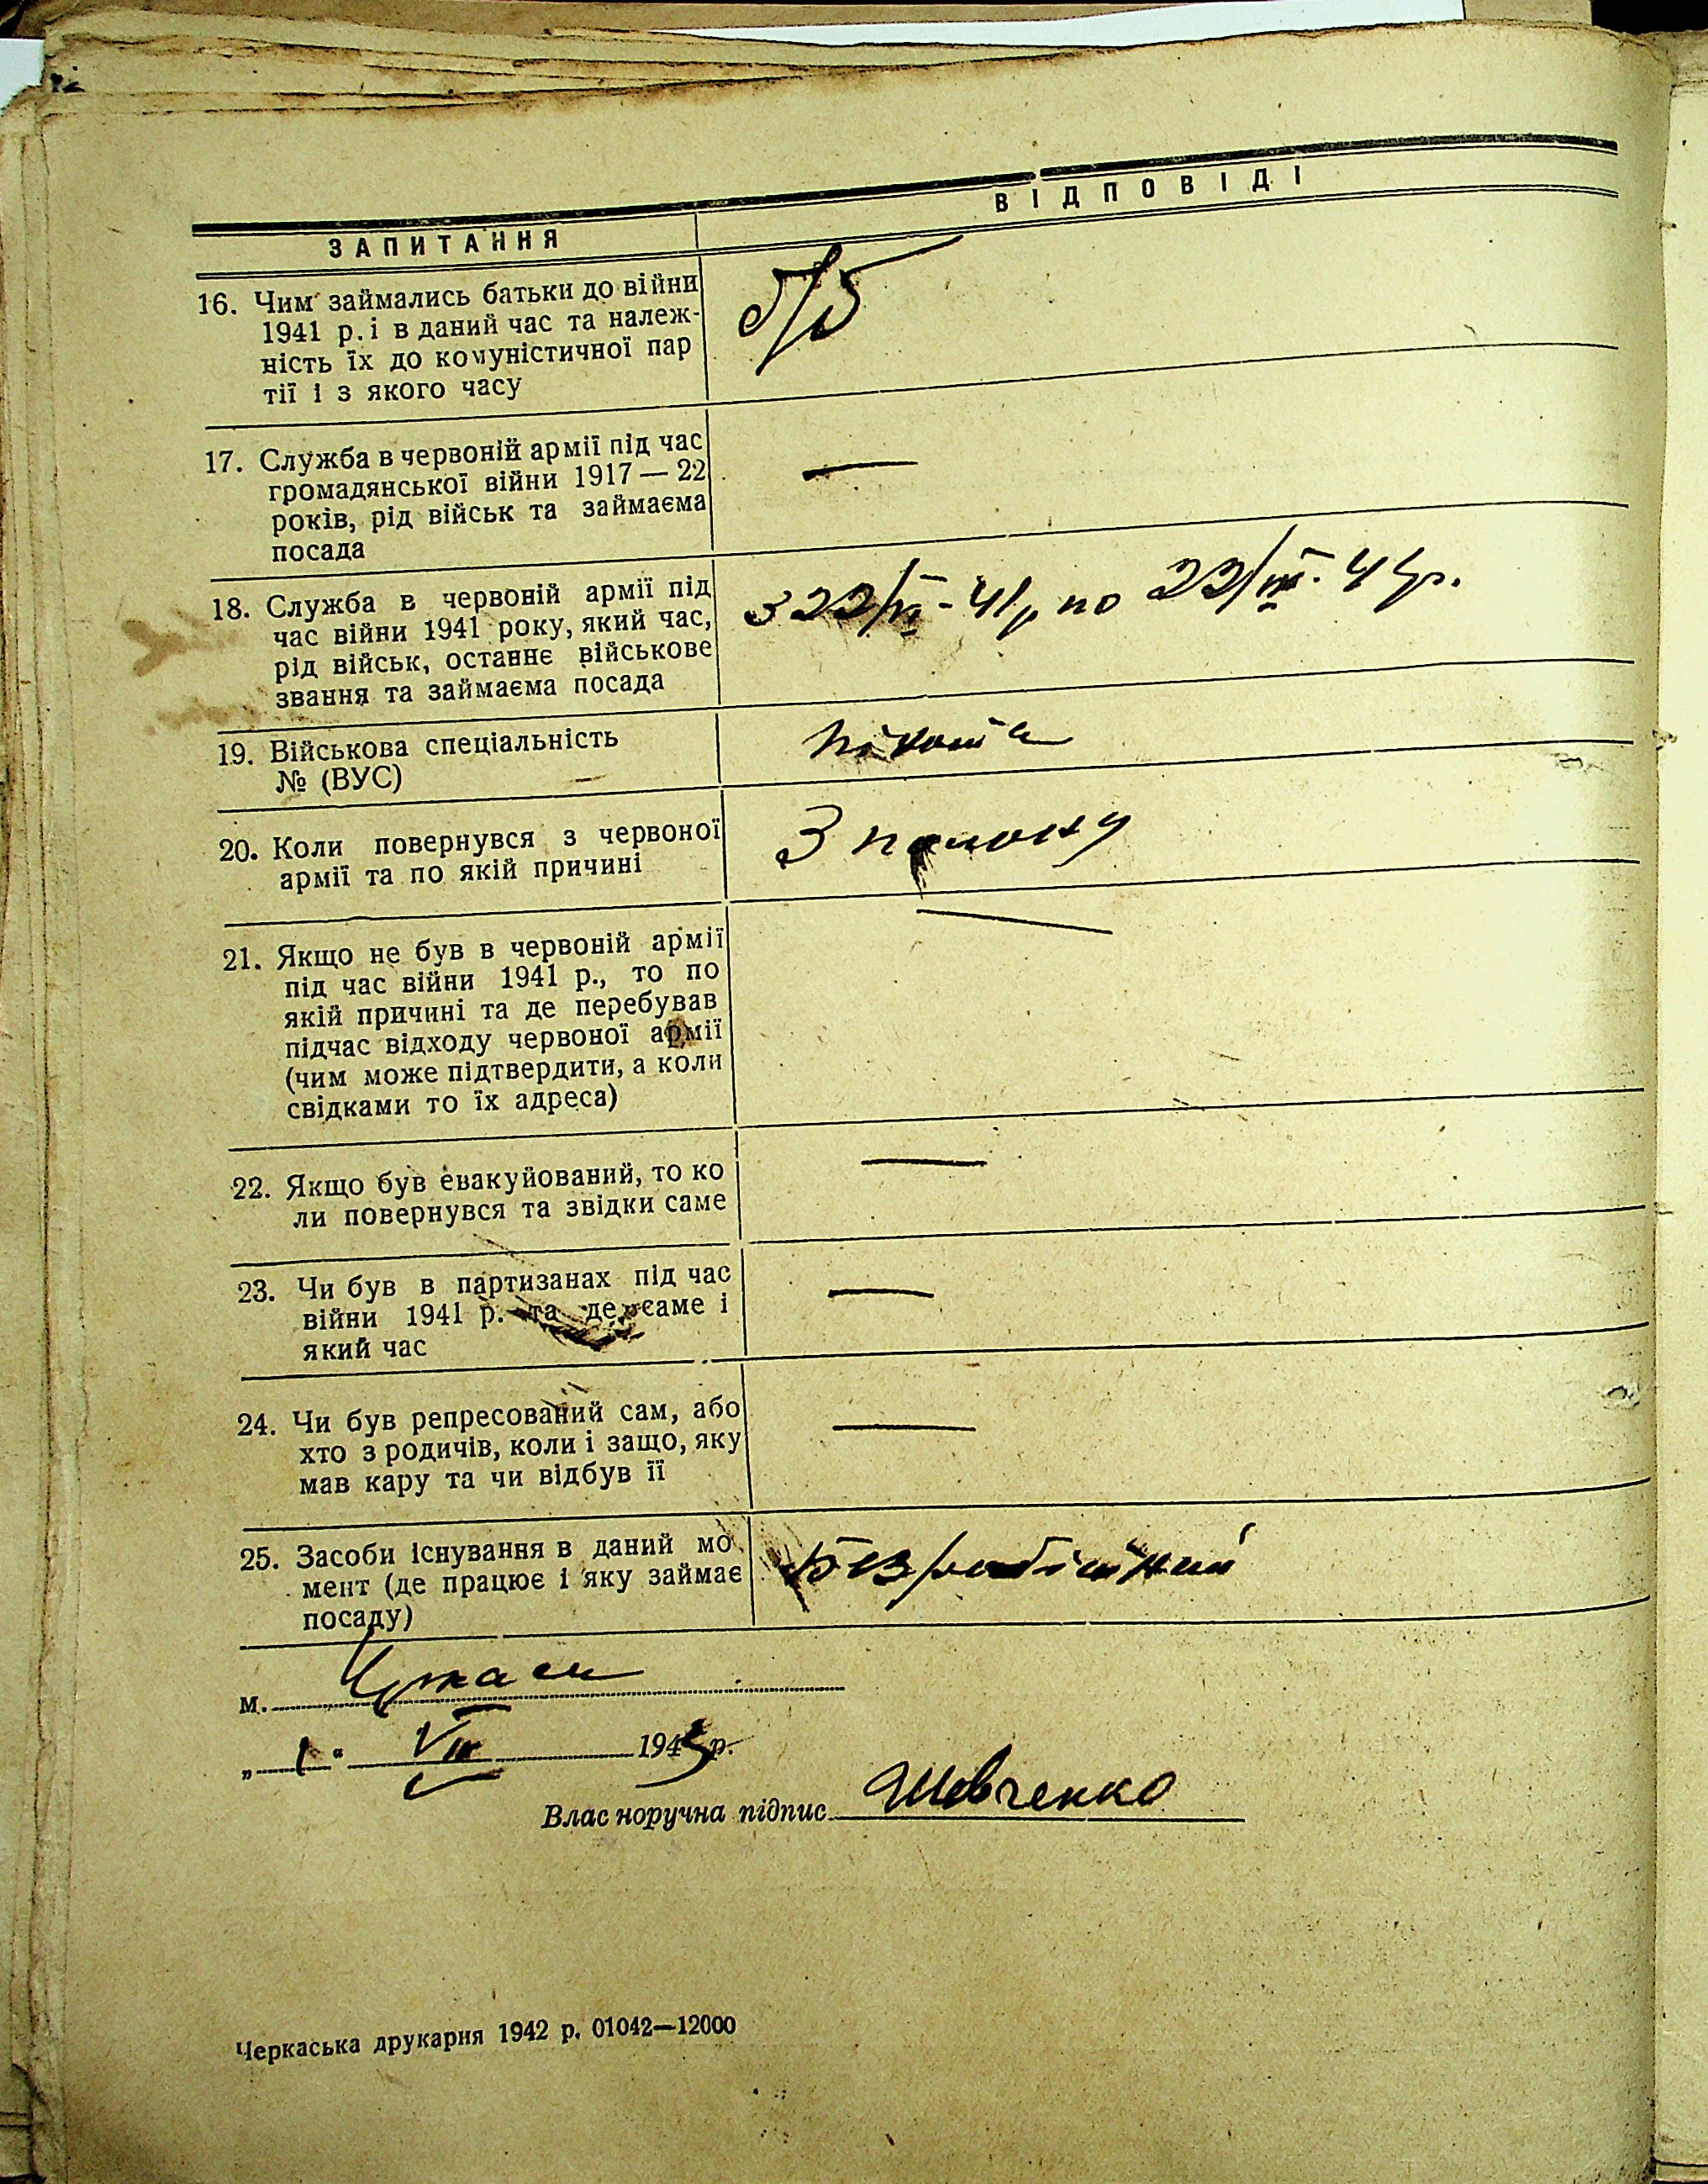 ЗАПИТАННЯ
ВІДПОВІДІ
16. Чим займались батьки до війни
1941 р. і в даний час та належ-
ність їх до комуністичної пар
тії і з якого часу
б/б
17. Служба в червоній армії під час
громадянської війни 1917 — 22
років, рід військ та займаєма
посада
—
18. Служба в червоній армії під
час війни 1941 року, який час,
рід військ, останнє військове
звання та займаєма посада
з 22/VI-41р по 22/ 41р.
19. Військова спеціальність
№ (ВУС)
піхота
20. Коли повернувся з червоної
армії та по якій причині
З полону
21. Якщо не був в червоній армії
під час війни 1941 р., то по
якій причині та де перебував
підчас відходу червоної армії
(чим може підтвердити, а коли
свідками то їх адреса)
—
22. Якщо був евакуйований, то ко
ли повернувся та звідки саме
—
23. Чи був в партизанах під час
війни 1941 р. та де саме і
який час
—
24. Чи був репресований сам, або
хто з родичів, коли і защо, яку
мав кару та чи відбув її
—
25. Засоби існування в даний мо
мент (де працює і яку займає
посаду)
Безробітний
м. Черкаси
„1“ VII 1943 р.
Власноручна підпис Шевченко
Черкаська друкарня 1942 р. 01042—12000